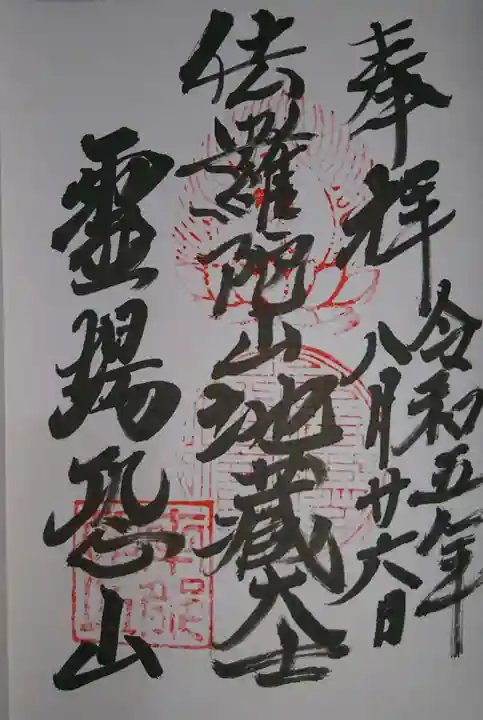 奉拝
令和五年
八月廿六日
伝羅陀山地蔵大士
霊場恐山